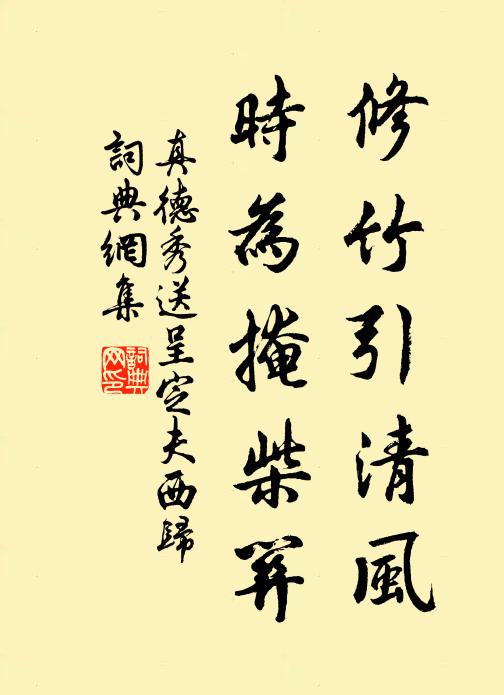 修竹引清風
時為掩柴關
真德秀送呈定夫西歸
詞典網集
詞典
网印